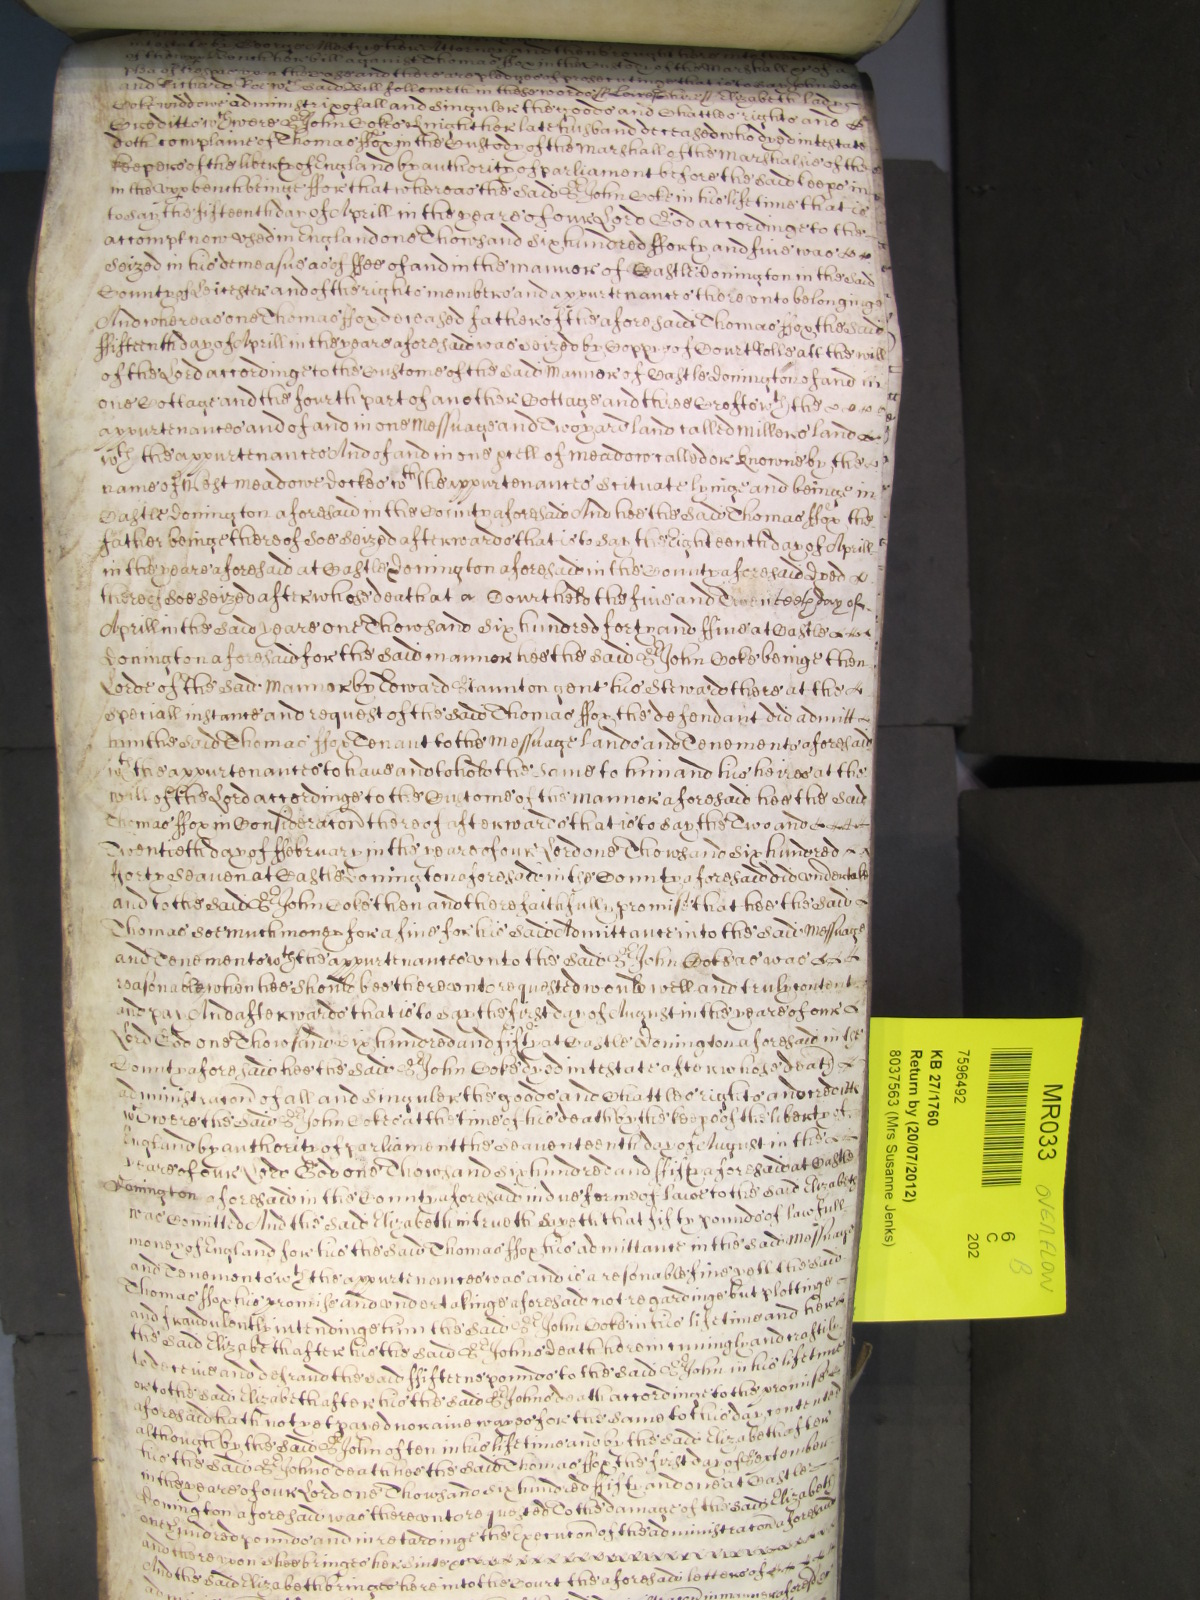 and Edward Sais Bill followeth in these words Leic ss Elizabeth Lady
Coke widdowe administr of all and singuler the goods and Chattles rights and
Creditts wch were Sr John Coke Knight her late husband deceased who dyed intestate
doth complaine of Thomas ffox in the Custody of the Marshall of the Marshalsie of the
Keepers of the liberty of England by authority of parliament before the said keeps in
in the upp bench beinge ffor that whereas the said Sr John Coke in his life time that is
to say the fifteenth day of Aprill in the yeare of our Lord God accordinge to the
accompt now used in England one Thowsand Six hundred fforty and five was
seized in his demeasne as of ffee of and in the mannor of Castle Donington in the said
County of Leicester and of the rights members and appurtenances thereunto belonginge
And whereas one Thomas ffox deceased father of the aforesaid Thomas ffox the said
ffifteenth day of Aprill in the yeare aforesaid was seized by Coppy of Court Rolle att the will
of the Lord accordinge to the Custome of the said Mannor of Castle Donington of and in
one Cottage and the fourth part of another Cottage and three Crofts wth the
appurtenances and of and in one Messuage and Two yard land called Millers land
wth the appurtenances And of and in one pcell of meadow called or knowne by the
name of West meadowe dockes wth the appurtenances Scituate lyinge and beinge in
Castle Donington aforesaid in the County aforesaid And hee the said Thomas ffox the
father beinge thereof soe seized afterwards that is to say the Eighteenth day of Aprill
in the yeare aforesaid at Castle Donington aforesaid in the County aforesaid dyed
thereof soe seized after whose death at a Court held the five and Twenteeth day of
Aprill in the said yeare one Thowsand Six hundred forty and ffive at Castle
Donington aforesaid for the said mannor hee the said Sr John Coke beinge then
Lorde of the said Mannor by Edward Staunton gent his Steward there at the
speciall instance and request of the said Thomas ffox the defendant did admitt
him the said Thomas ffox Tenant to the Messuage Lands and Tenements aforesaid
wth the appurtenances to have and to hold the same to him and his heires at the
will of the Lord accordinge to the Custome of the Mannor aforesaid hee the said
Thomas ffox in Consideracon thereof afterwards that is to say the Two and
Twentieth day of ffebruary in the yeare of our Lord one Thowsand Six hundred
forty Seaven at Castle Donington aforesaid in the County aforesaid did undertake
and to the said Sr John Coke then and there faithfully promise that hee the said
Thomas soe much money for a fine for his said Admittance into the said Messuage
and Tenements wth the appurtenances unto the said Sr John Coke as was
reasonable when hee should bee thereunto requested would well and truly content
and pay And afterwards that is to say the first day of August in the yeare of our
Lord God one Thowsand Six hundred and fifty at Castle Donington aforesaid in the
County aforesaid hee the said Sr John Coke dyed intestate after whose death
administracon of all and singuler the goods and Chattles rights and creditts
wch were the said Sr John Cokes at the time of his death by the keeps of the liberty of
England by authority of parliament the Seaventeenth day of August in the
yeare of our Lord God one Thowsand Six hundred and ffifty aforesaid at Castle
Donington aforesaid in the County aforesaid in due forme of Lawe to the said Elizabeth
was Comitted And the said Elizabeth in trueth sayeth that fifty pounds of lawfull
money of England for his the said Thomas ffox his admittance in the said Messuage
and Tenements wth the appurtenances was and is a resonable fine yett the said
Thomas ffox his promise and undertakinge aforesaid not regardinge but plottinge
and fraudulently intendinge him the said Sr John Coke in his life time and her
the said Elizabeth after his the said Sr Johns death herein cunningly and craftily
to deceive and defraud the said ffifteene pounds to the said Sr John in his life time
or to the said Elizabeth after his the said Sr Johns death accordinge to the promise
aforesaid hath not yet payed nor aine wayes for the same to this day contented
although by the said Sr John often in his life time and by the said Elizabeth after
his the said Sr Johns death hee the said Thomas ffox the first day of September
in the yeare of our Lord one Thowsand Six hundred ffifty and one at Castle
Donington aforesaid was thereunto requested To the damage of the said Elizabeth
one hundred pounds and in retardinge the Execucon of the administracon aforesaid
and thereupon shee bringes her suite
And the said Elizabeth brings here into the Court the aforesaid letters of
MR033
OVERFLOW
B
6
C
202
7596492
KB 27/1760
Return by (20/07/2012)
8037563 (Mrs Susanne Jenks)